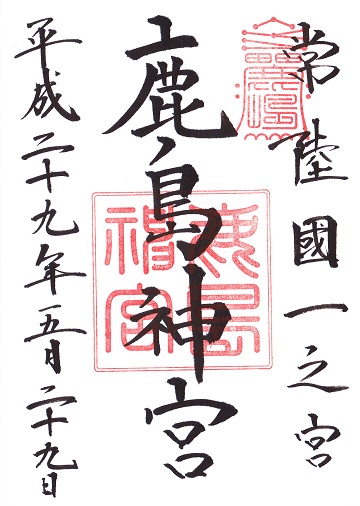 常陸國一之宮
鹿島神宮
鹿島神宮
平成二十九年五月二十九日